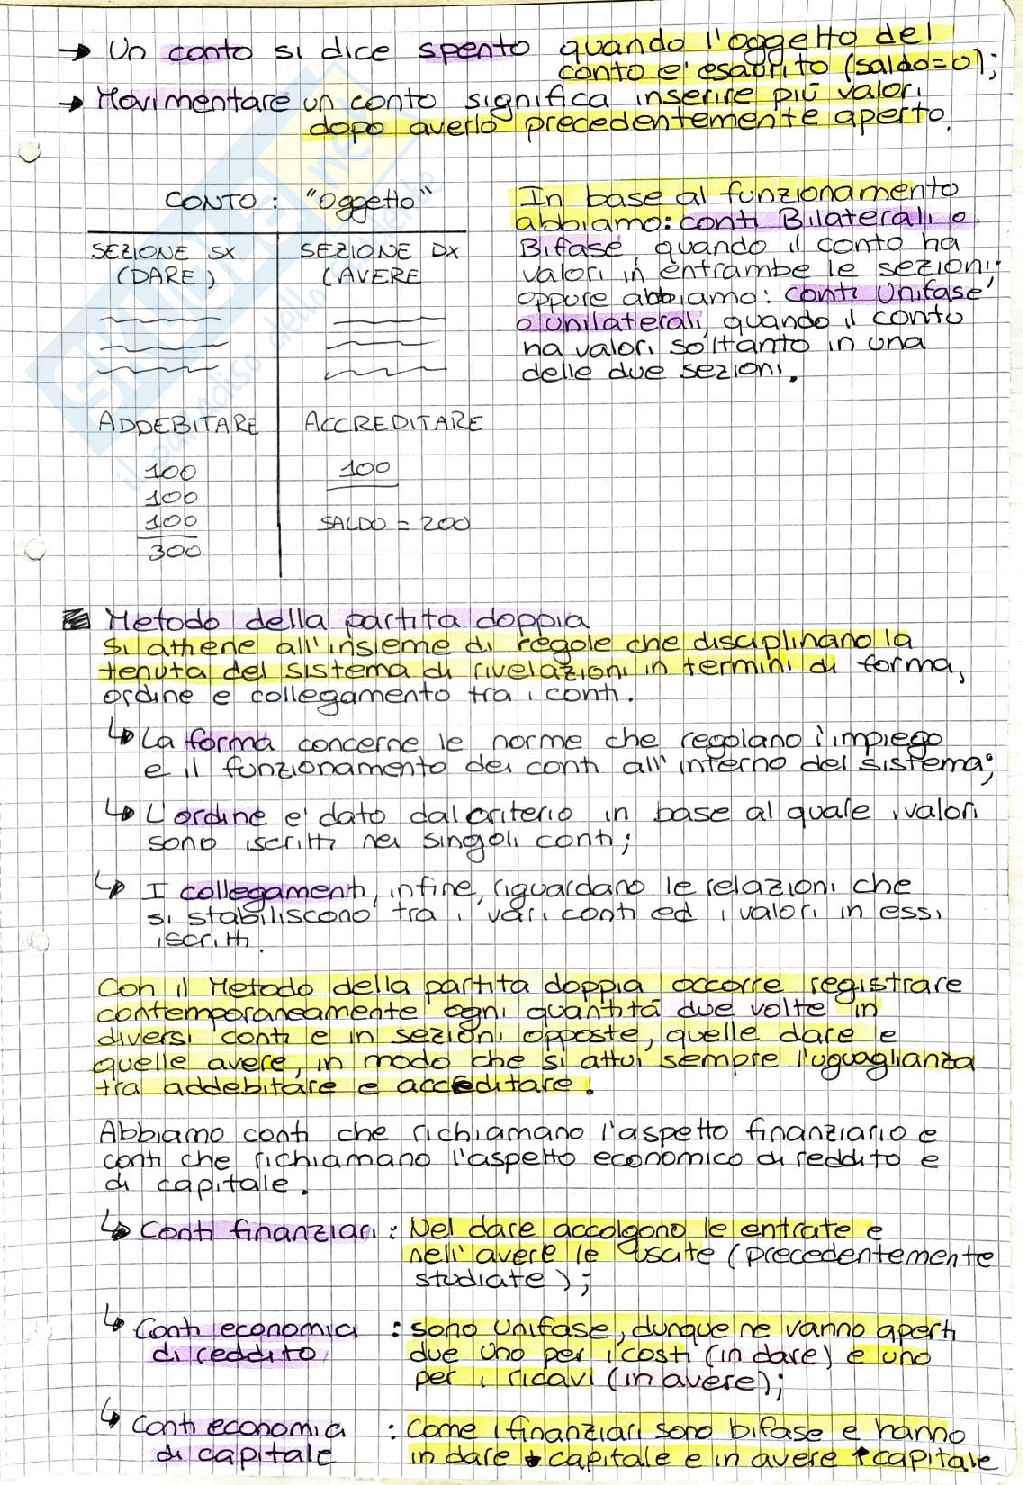 → Un conto si dice spento quando l'oggetto del
conto e' esaurito (saldo=0);
→ Movimentare un conto significa inserire più valori
dopo averlo precedentemente aperto.
CONTO: "Oggetto"
SEZIONE SX
(DARE)
SEZIONE DX
(AVERE
ADDEBITARE
ACCREDITARE
100
100
100
300
100
SALDO = 200
In base al funzionamento
abbiamo: conti Bilaterali o
Bifase, quando il conto ha
valori in entrambe le sezioni;
oppore abbiamo: conti Unifase
o Unilaterali, quando il conto
ha valori soltanto in una
delle due sezioni.
Metodo della partita doppia
Si attiene all'insieme di regole che disciplinano la
tenuta del sistema di rivelazioni in termini di forma,
ordine e collegamento tra i conti.
↳ La forma concerne le norme che regolano l'impiego
e il funzionamento dei conti all'interno del sistema;
↳ L'ordine e' dato dal criterio in base al quale i valori
sono iscritti nei singoli conti;
↳ I collegamenti, infine, riguardano le relazioni che
si stabiliscono tra i vari conti ed i valori in essi
iscritti.
Con il Metodo della partita doppia occorre registrare
contemporaneamente ogni quantitá due volte in
diversi conti e in sezioni opposte, quelle dare e
quelle avere, in modo che si attui sempre l'uguaglianza
tra addebitare e accreditare.
Abbiamo conti che richiamano l'aspetto finanziario e
conti che richiamano l'aspetto economico di reddito e
di capitale.
↳ Conti finanziari: Nel dare accolgono le entrate e
nell'avere le uscite (precedentemente
studiate);
↳ Conti economici
di reddito
: sono Unifase, dunque ne vanno aperti
due uno per i costi (in dare) e uno
per i ricavi (in avere);
↳ Conti economici
di capitale
: Come i finanziari sono bifase e hanno
in dare ↓ capitale e in avere ↑ capitale